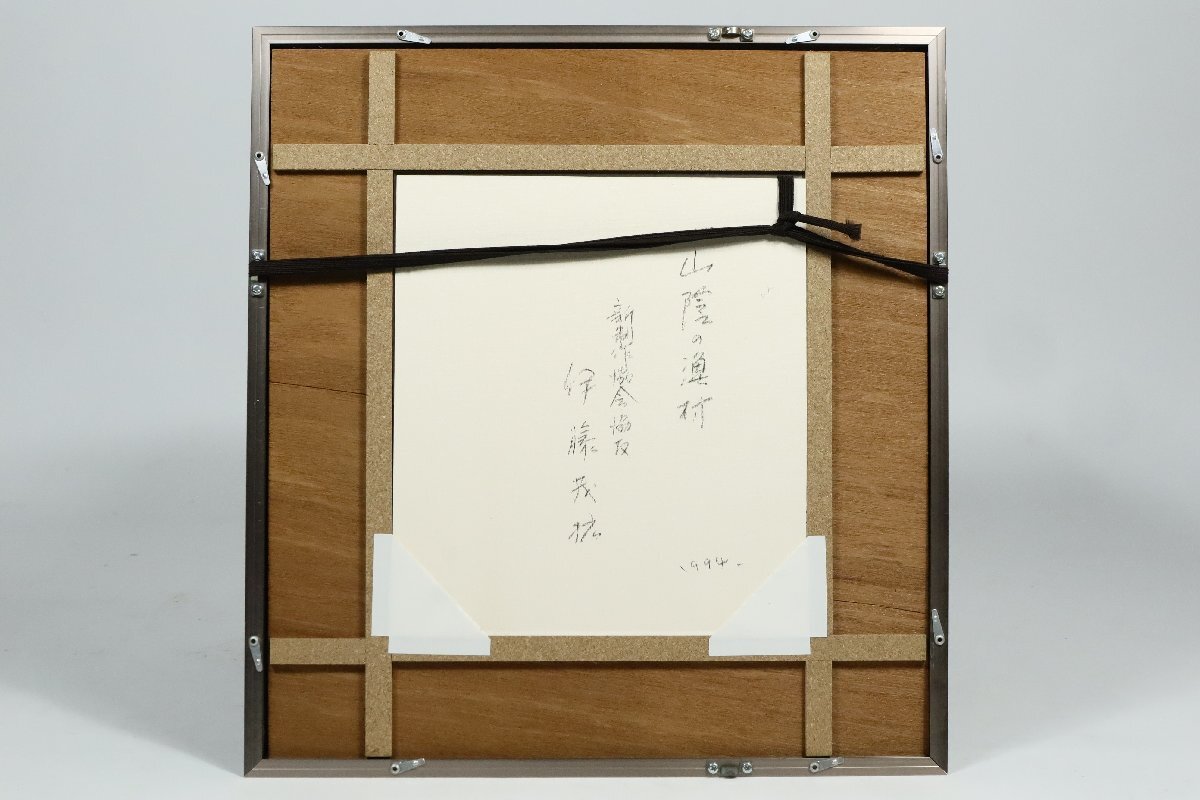 山陰の漁村
新制作協会協友
伊藤茂拡
1994.